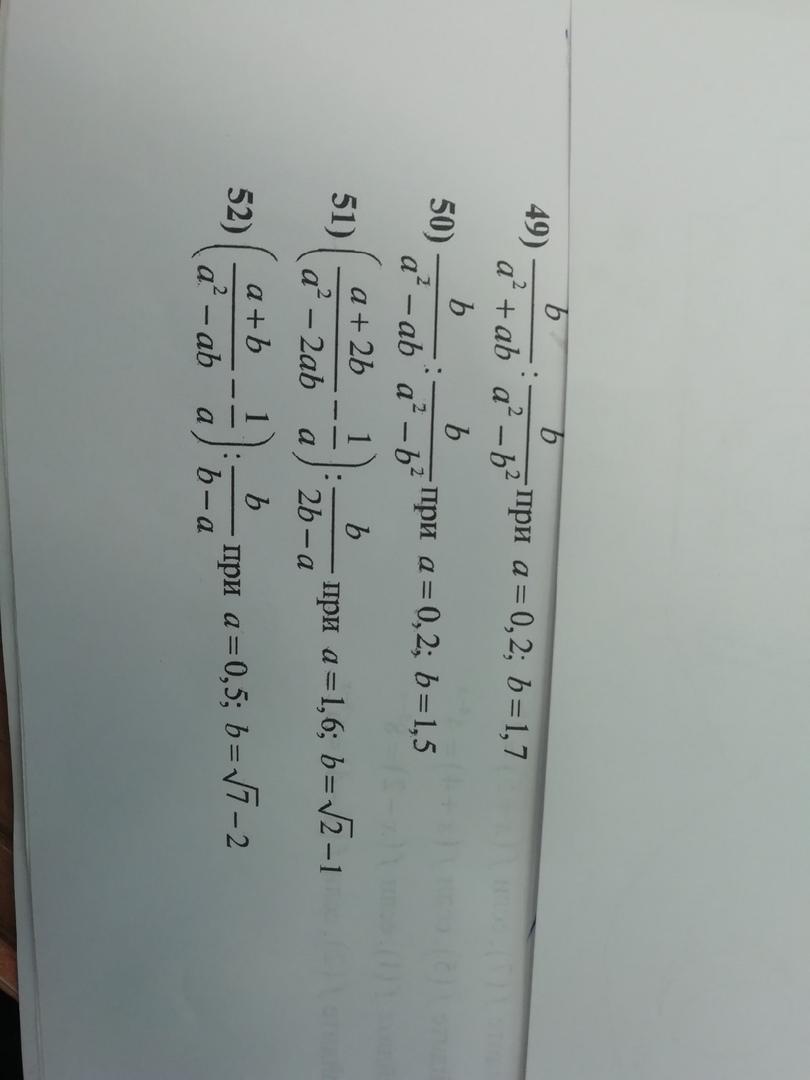 49) b/(a² + ab) : b/(a² − b²) при a = 0,2; b = 1,7
50) b/(a² − ab) : b/(a² − b²) при a = 0,2; b = 1,5
51) ((a + 2b)/(a² − 2ab) − 1/a) : b/(2b − a) при a = 1,6; b = √2 − 1
52) ((a + b)/(a² − ab) − 1/a) : b/(b − a) при a = 0,5; b = √7 − 2